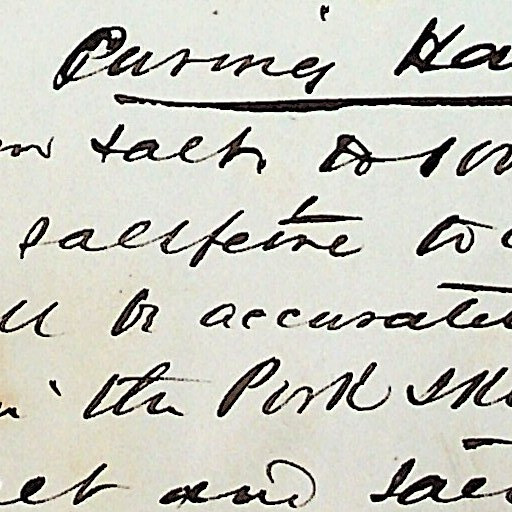 Curing Ha
salt, to 100
saltpetre to
ll be accurate
in the Pork
and salt